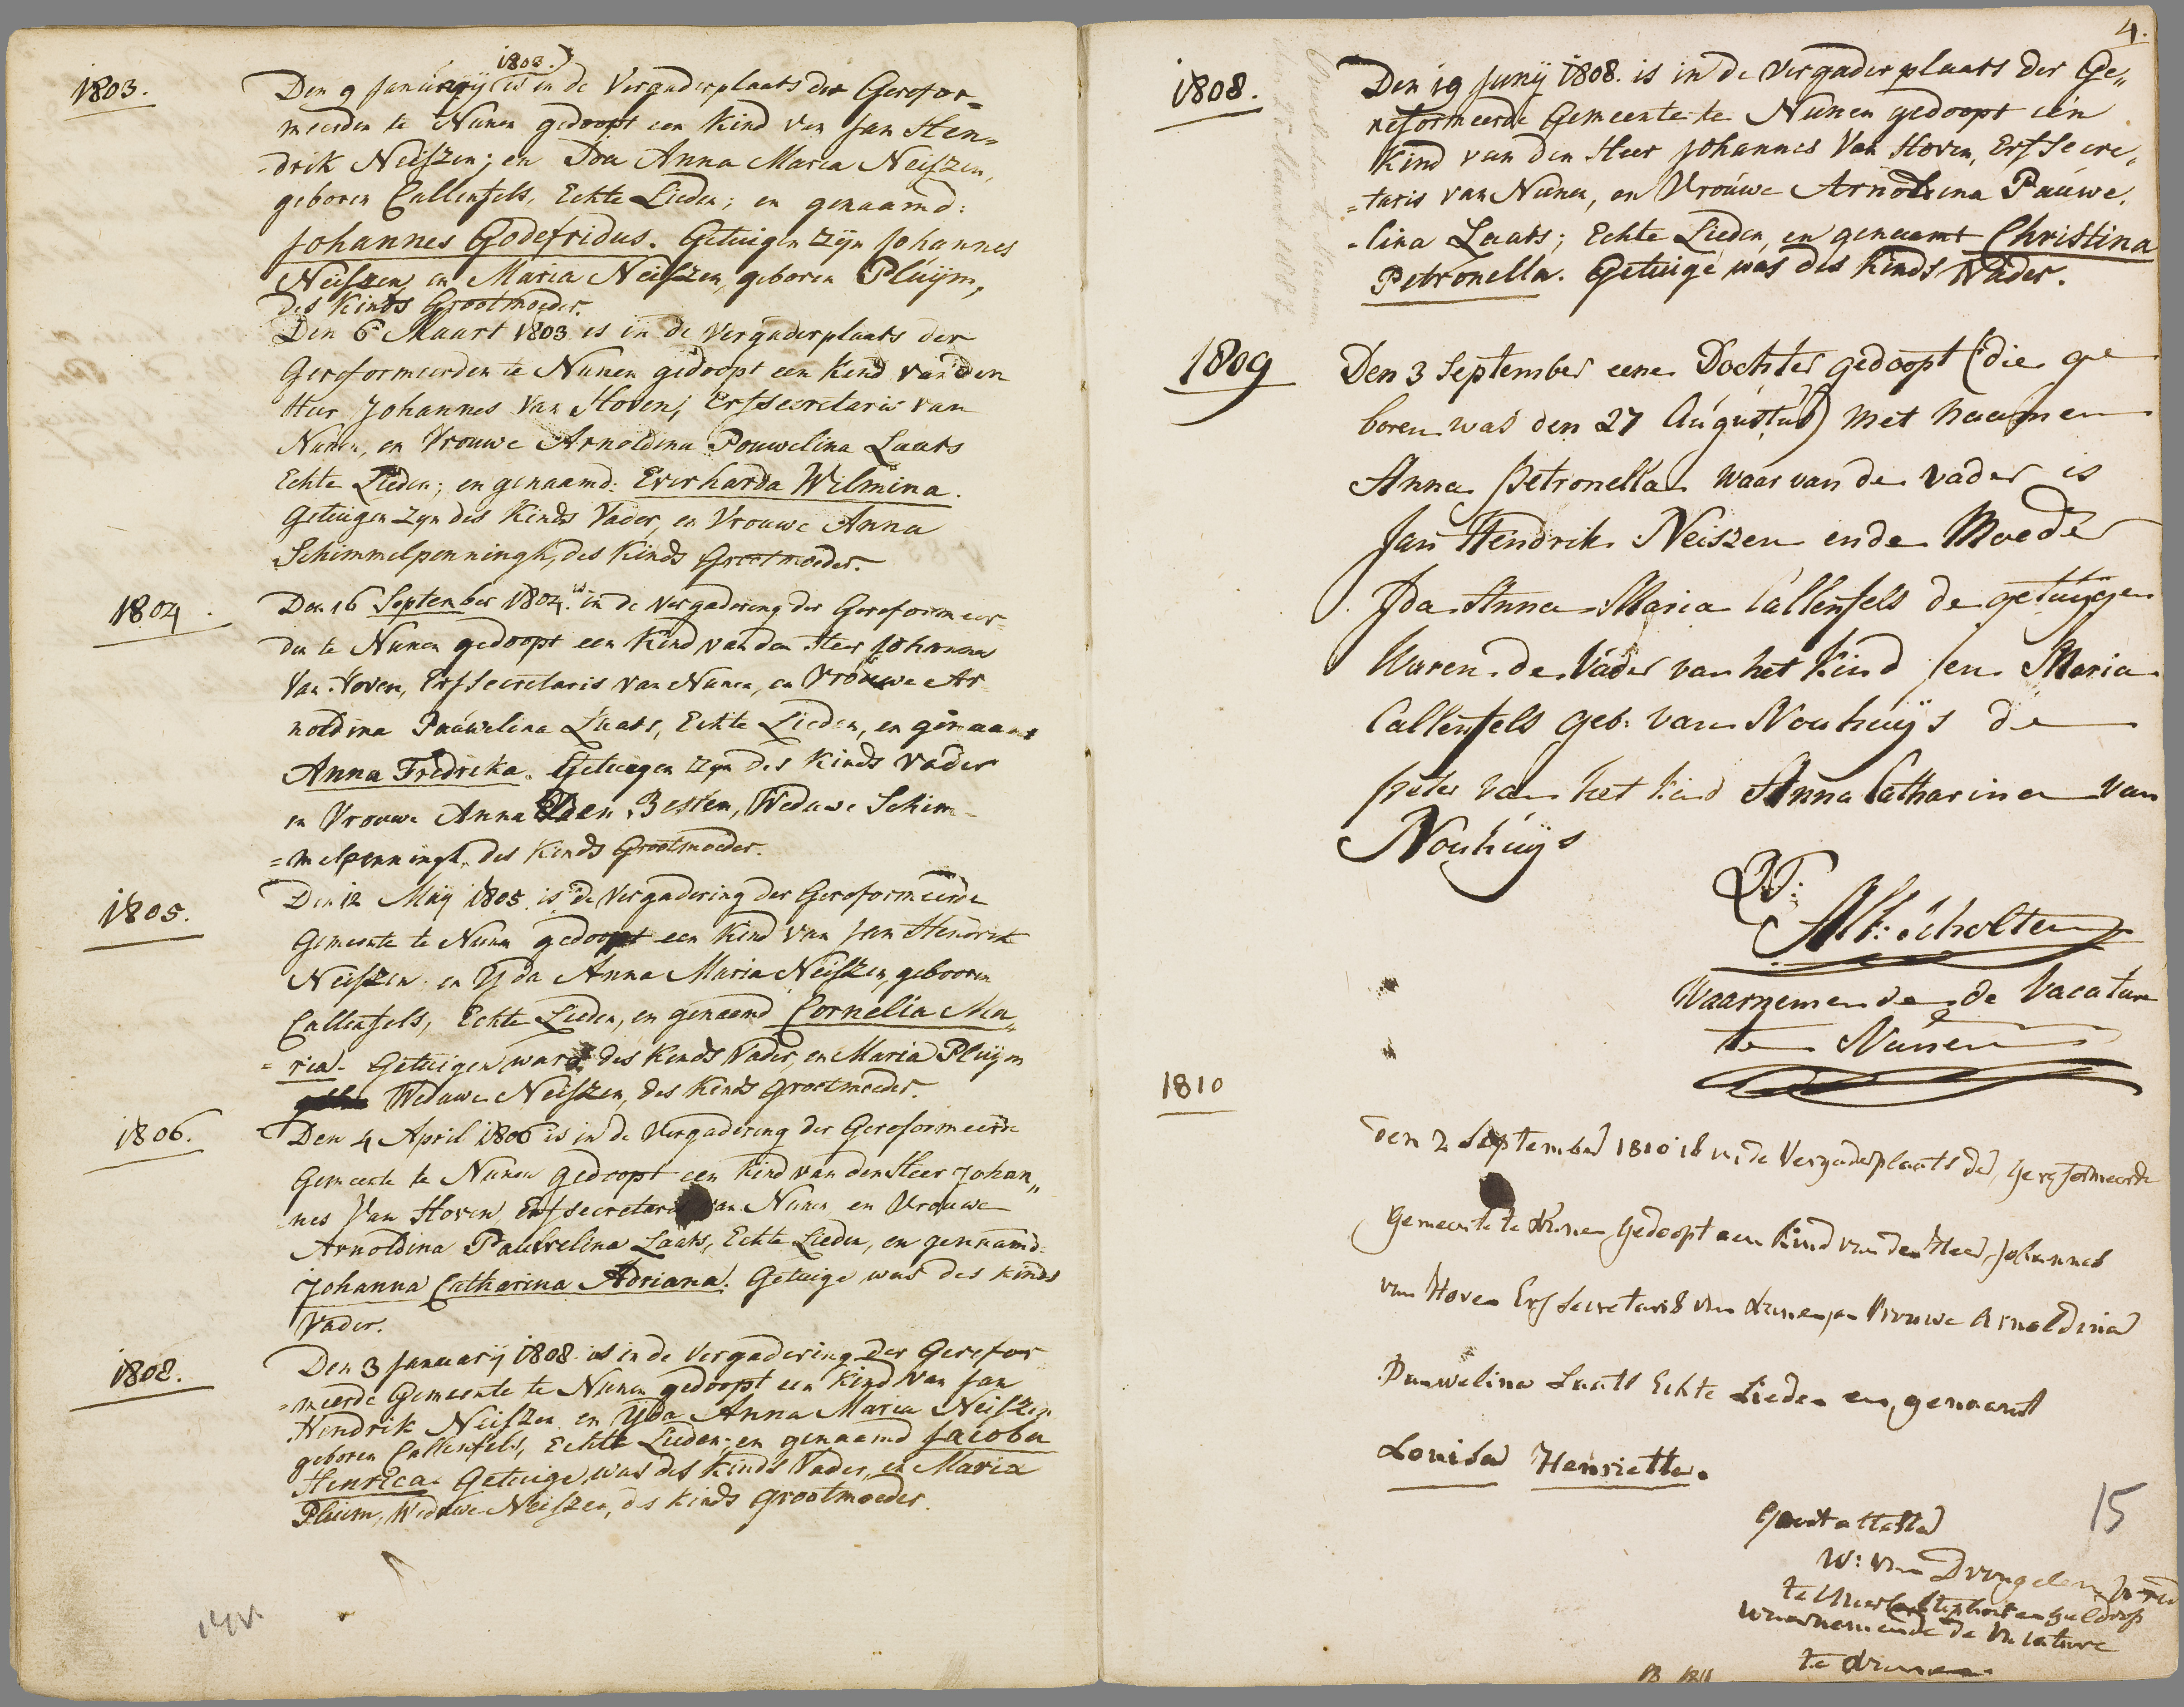 1803.
1803.
Den 9 Januarij is in de Vergaderplaats der Gerefor=
meerden te Nunen gedoopt een Kind van Jan Hen=
drik Neiszen; en Ida Anna Maria Neiszen,
geboren Callenfels, Echte Lieden; en genaamd:
Johannes Godefridus. Getuigen zyn Johannes
Neiszen, en Maria Neiszen, geboren Pluijm,
des Kinds Grootmoeder.
Den 6 Maart 1803 is in de Vergaderplaats der
Gereformeerden te Nunen gedoopt een Kind van den
Heer Johannes Van Hoven, Erfsecretaris van
Nunen, en Vrouwe Arnoldina Pouwelina Laats
Echte Lieden; en genaamd: Everharda Wilmina.
Getuigen zyn des Kinds Vader, en Vrouwe Anna
Schimmelpenningh, des Kinds Grootmoeder.
1804.
Den 16 September 1804. is in de vergadering der Gereformeer=
den te Nunen gedoopt een Kind van den Heer Johannes
Van Hoven, Erfsecretaris van Nunen, en Vrouwe Ar
noldina Pauwelina Laats, Echte Lieden, en genaamt
Anna Fredrika. Getuigen zyn des Kinds Vader
en Vrouwe Anna den Besten, Weduwe Schim=
=melpenningh, des Kinds Grootmoeder.
1805.
Den 12 Maij 1805 is de Vergadering der Gereformeerde
Gemeente te Nunen gedoopt een Kind van Jan Hendrik
Neiszen en Yda Anna Maria Neiszen, gebooren
Callenfels, Echte Lieden, en genaamd Cornelia Ma„
=ria. Getuigen ware des Kinds Vader, en Maria Pluijm
Weduwe Neiszen, des Kinds grootmoeder.
1806.
Den 4 April 1806 is in de Vergadering der Gereformeerde
Gemeente te Nunen gedoopt een Kind van den Heer Johan„
nes Van Hoven, Erfsecretaris van Nunen, en Vrouwe
Arnoldina Pauwelina Laats, Echte Lieden, en genaamd:
Johanna Catharina Adriana. Getuige was des kinds
Vader.
1808.
Den 3 January 1808 is in de Vergadering der Gerefor
=meerde Gemeente te Nunen gedoopt een Kind van Jan
Hendrik Neiszen en Yda Anna Maria Neiszen
geboren Callenfels, Echte Lieden, en genaamd Jacoba
Henrica. Getuige was des Kinds Vader, en Maria
Pluim, Weduwe Neiszen, des kinds grootmoeder.
4.
1808.
Den 19 Junij 1808. is in de Vergaderplaats der Ge„
reformeerde Gemeente te Nunen gedoopt een
Kind van den Heer Johannes Van Hoven, Erfsecre„
=taris van Nunen, en Vrouwe Arnoldina Pauwe,
-lina Laats; Echte Lieden, en genaamt Christina
Petronella. Getuige was des Kinds Vader.
1809
Den 3 September eene Dochter gedoopt (die ge
boren was den 27 Augustus) met naamen
Anna Petronella waar van de vader is
Jan Hendrik Neiszen en de Moeder
Ida Anna Maria Callenfels de getuygen
Waren de Vader van het Kind en Maria
Callenfels geb: van Nouhuijs de
peter van het kind Anna Catharina van
Nouhuijs
Alb: Scholten
Waarnemende de Vacature
te Nunen
1810
Den 2 September 1810 is in de Vergaderplaats der Gereformeerde
Gemeente te Nunen Gedoopt een Kind van den Heer Johannes
van Hoven Erfsecretaris van Nunen, en Vrouwe Arnoldina
Pauwelina Laats Echte Lieden en genaamt
Louisa Henriette.
15
quod attestor
W: van Drongelen
te Mierlo en Geldrop
waarnemende de vacature
te Nunen
1811